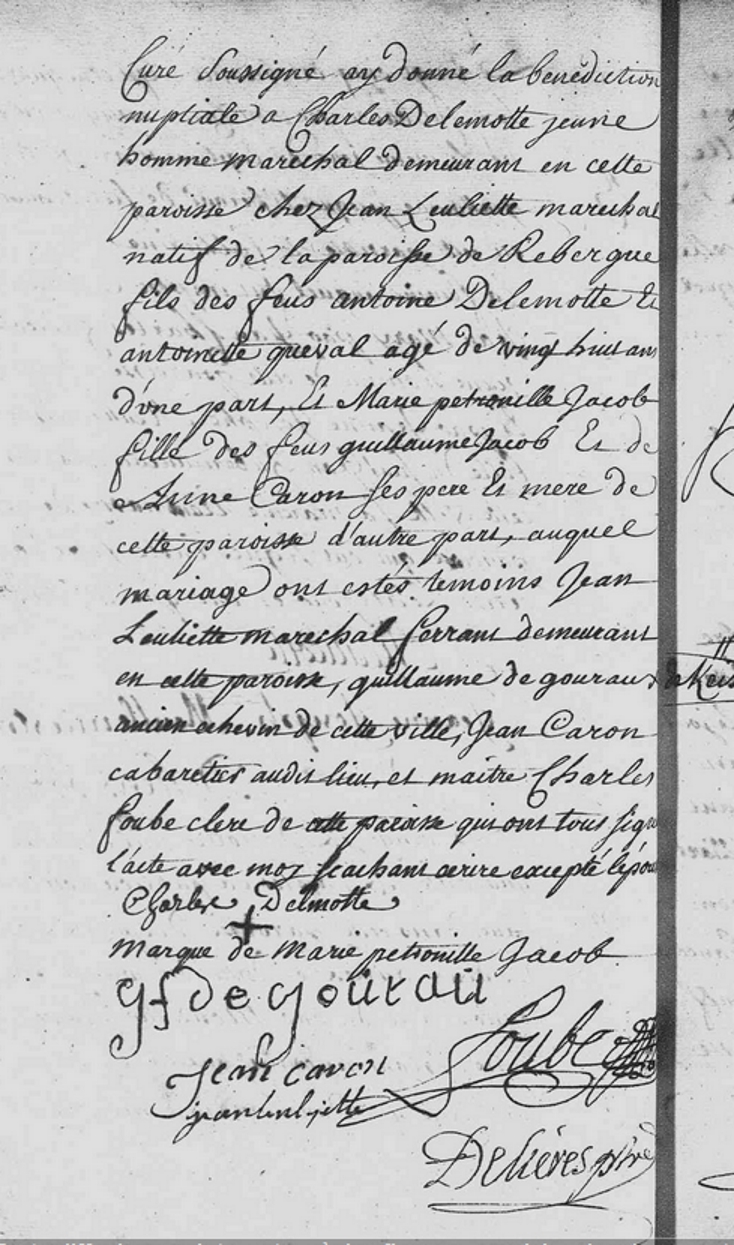 Curé Soussigné ay donné la benediction
nuptiale a Charles Delemotte jeune
homme marechal demeurant en cette
paroisse chez Jean Leuliette marechal
natif de la paroisse de Rebergue
fils des feus antoine Delemotte Et
antoinette queval agé de vingt huit ans
d'une part, Et Marie petronille Jacob
fille des feus guillaume Jacob Et de
Anne Caron ses pere Et mere de
cette paroisse d'autre part, auquel
mariage ont estés temoins Jean
Leuliette marechal ferrant demeurant
en cette paroisse, guillaume de gouraux
ancien echevin de cette ville, Jean Caron
cabaretier audit lieu, et maitre Charles
foube clerc de cette paroisse qui ont tous signé
l'acte avec moy scachant écrire excepté l'épou
Charles Delmotte
marque de Marie petronille Jacob
gf de gourau
Foube
Jean caron
jean leuliette